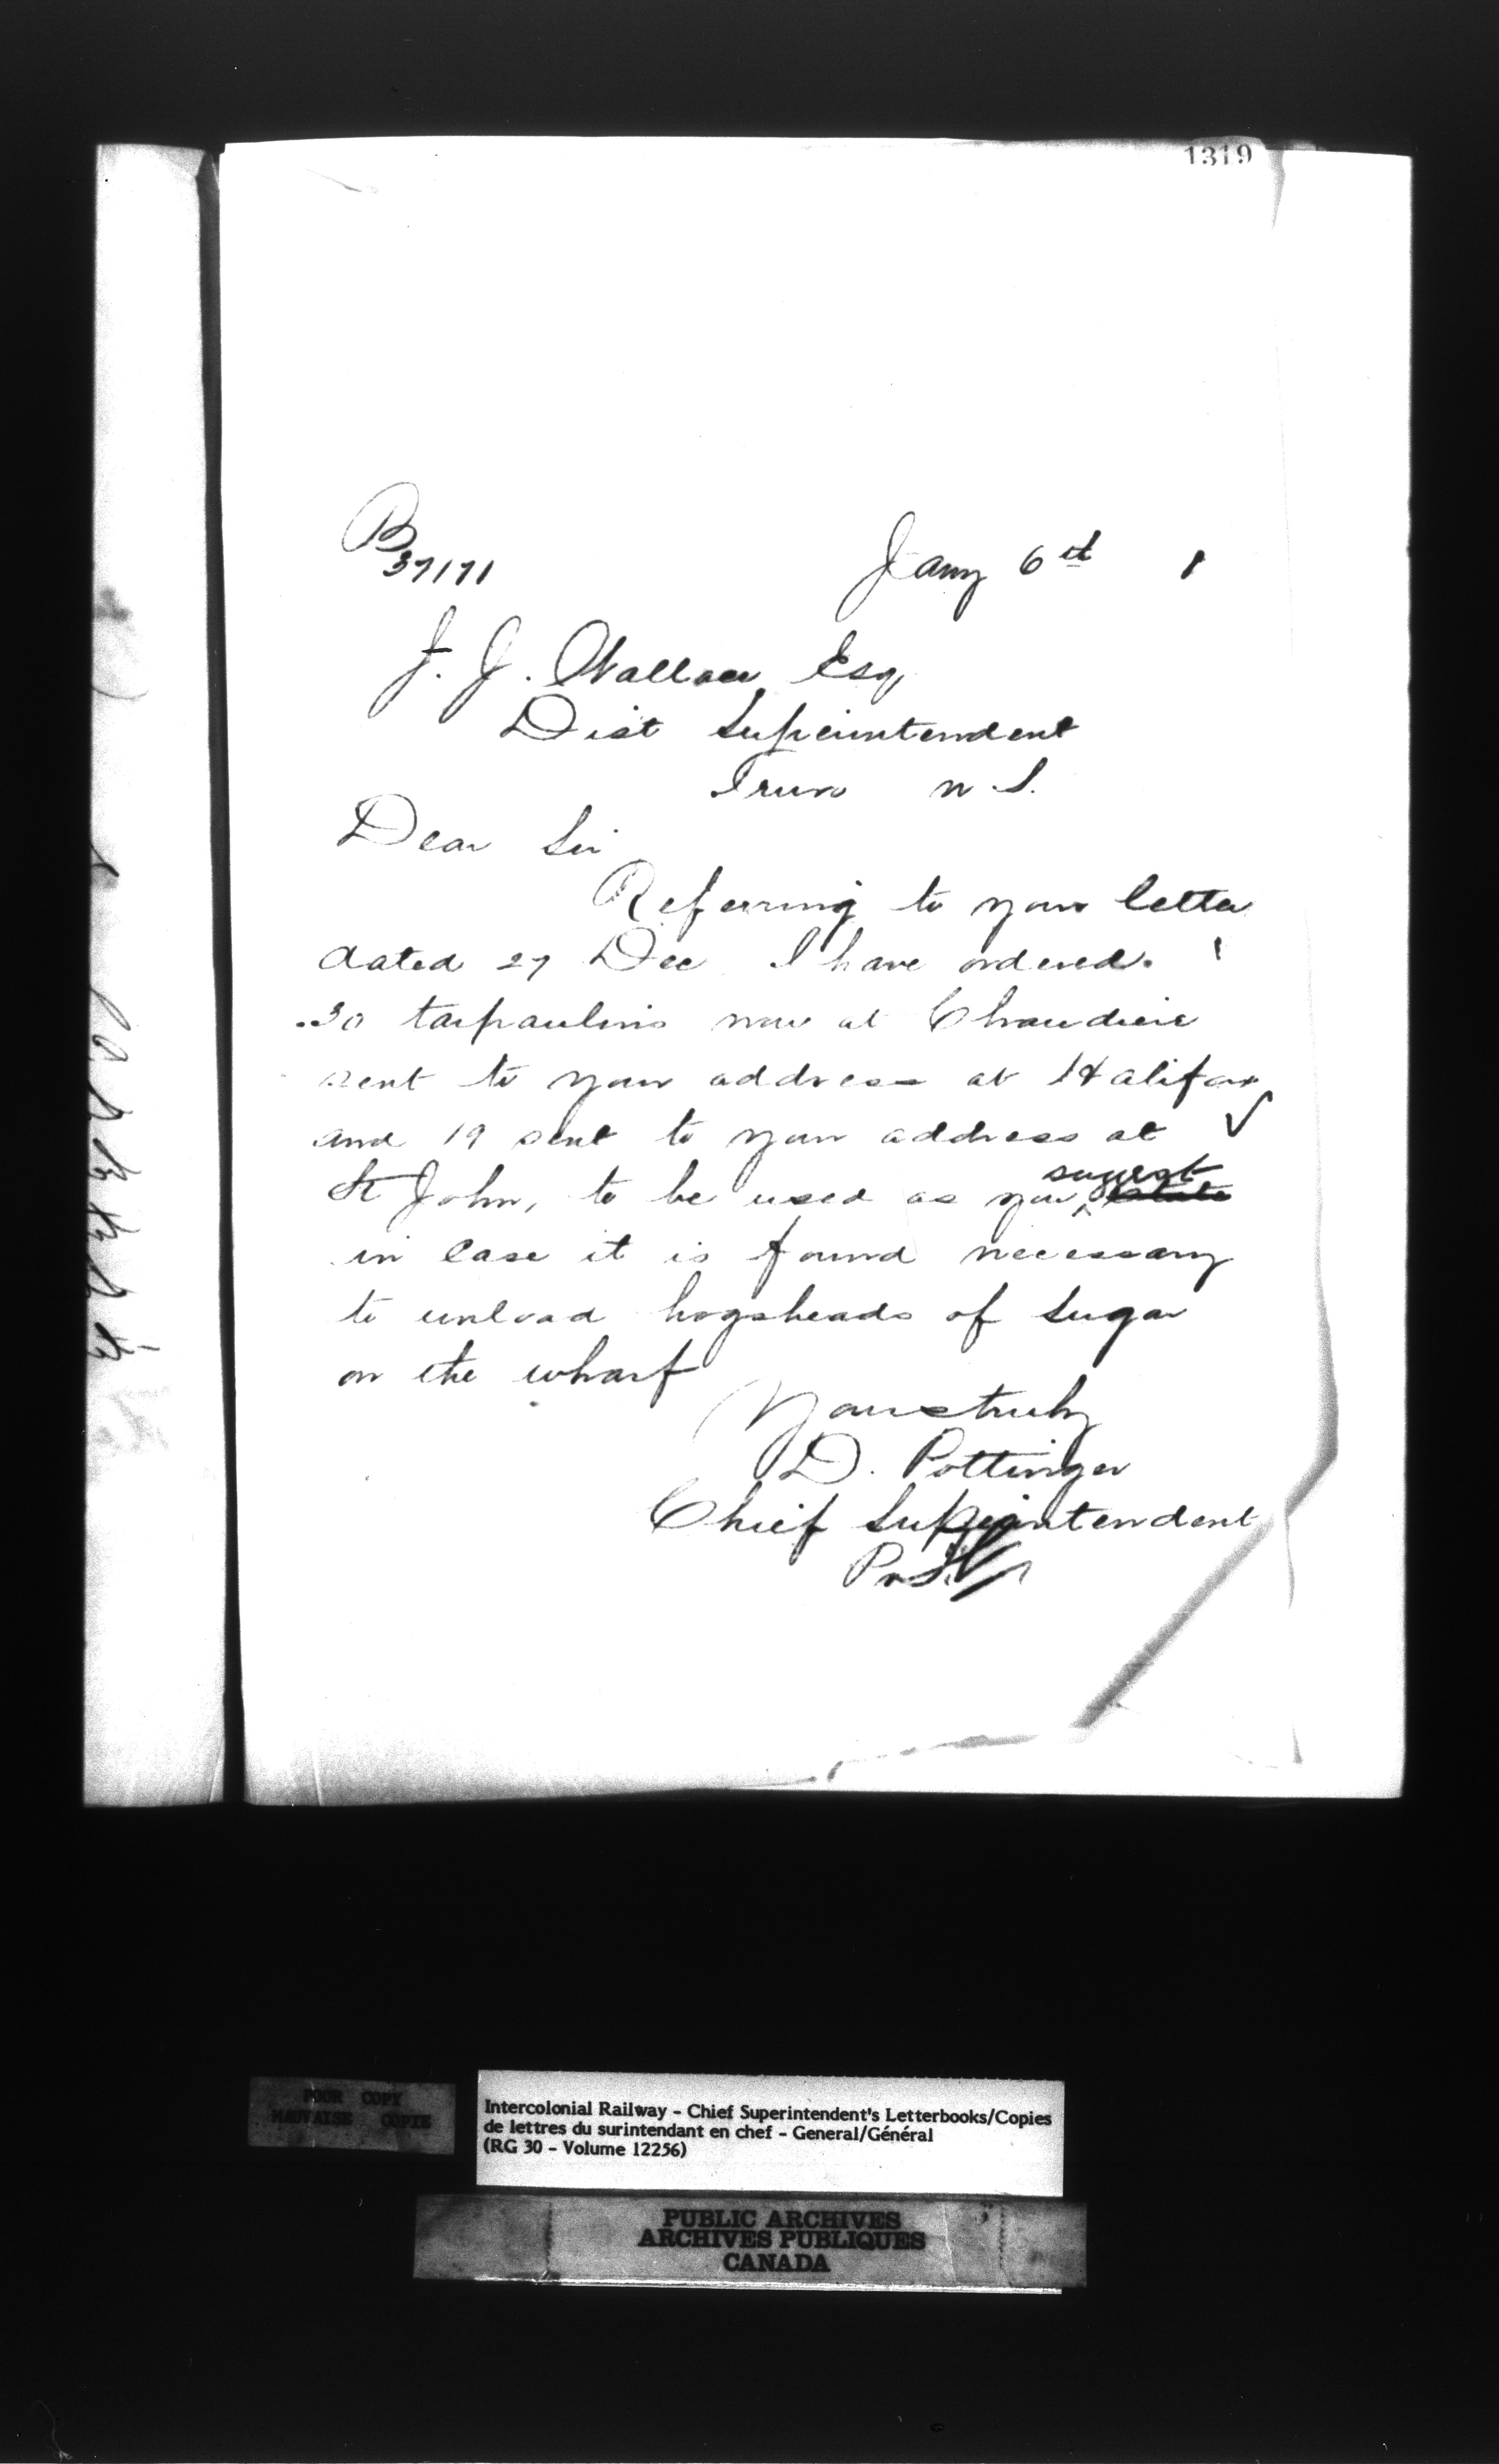 1319
B 37171
Jany 6th 1
J. J. Wallace Esq
Dist Superintendent
Truro N. S.
Dear Sir
Referring to your letter
dated 27 Dec I have ordered
30 tarpaulins now at Chaudiere
sent to your address at Halifax
and 19 sent to your address at
St John, to be used as you suggest
in case it is found necessary
to unload hogsheads of sugar
on the wharf
Yours truly
D. Pottinger
Chief Superintendent
POOR COPY
MAUVAISE COPIE
Intercolonial Railway - Chief Superintendent's Letterbooks/Copies
de lettres du surintendant en chef - General/Général
(RG 30 - Volume 12256)
PUBLIC ARCHIVES
ARCHIVES PUBLIQUES
CANADA